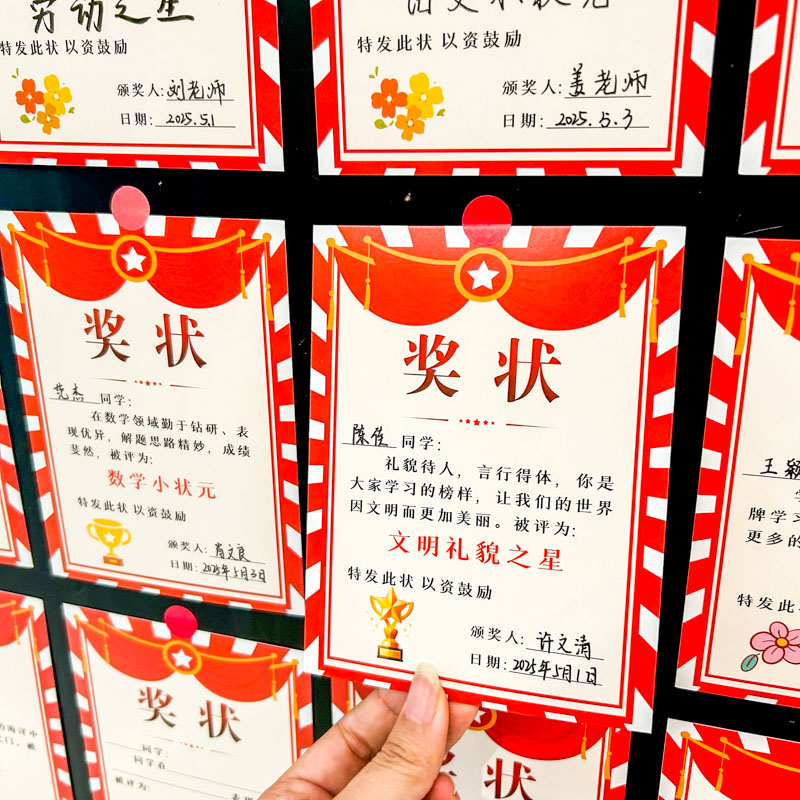 劳动之星
特发此状 以资鼓励
颁奖人: 刘老师
日期: 2025.5.1
语文小状元
特发此状 以资鼓励
颁奖人: 姜老师
日期: 2025.5.3
奖状
范杰 同学:
在数学领域勤于钻研、表
现优异,解题思路精妙,成绩
斐然,被评为:
数学小状元
特发此状 以资鼓励
颁奖人: 肖文良
日期: 2025年5月3日
奖状
陈佳 同学:
礼貌待人,言行得体,你是
大家学习的榜样,让我们的世界
因文明而更加美丽。被评为:
文明礼貌之星
特发此状 以资鼓励
颁奖人: 许文清
日期: 2025年5月1日
王颖
牌学习
更多的
特发此状
奖状
同学:
同学在
被评为:
奖状